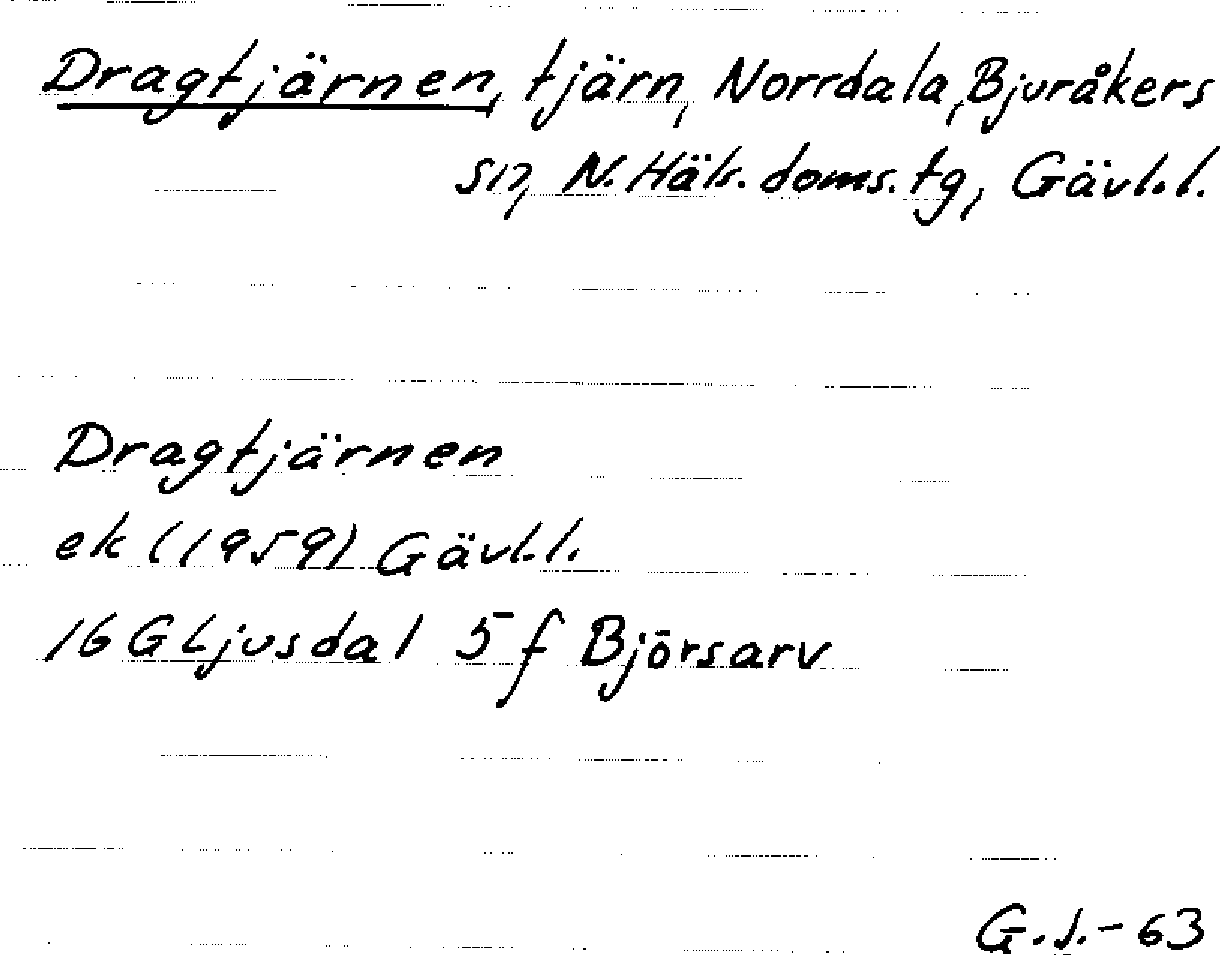 Dragtjärnen, tjärn, Norrdala, Bjuråkers
sn, N. Häls. doms. tg, Gävl.l.
Dragtjärnen
ek (1959) Gävl.l.
16 G Ljusdal 5 f Björsarv
G.J.-63